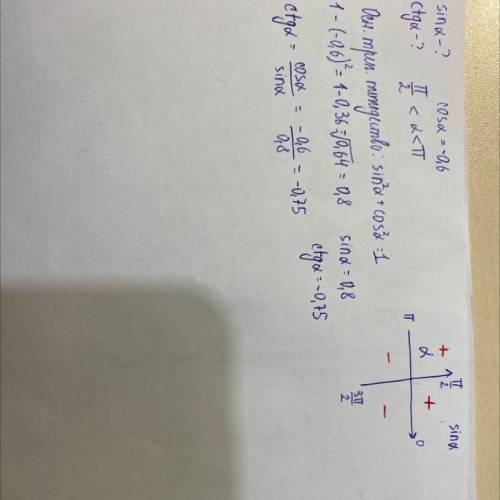 sinα-? cosα=-0,6
ctgα-? π/2 < α < π
Осн. триг. тождество: sin²α + cos²α = 1
1 - (-0,6)² = 1 - 0,36 = √0,64 = 0,8 sinα = 0,8
ctgα = cosα/sinα = -0,6/0,8 = -0,75 ctgα = -0,75
sinα
π/2
+ +
α
π 0
- -
3π/2